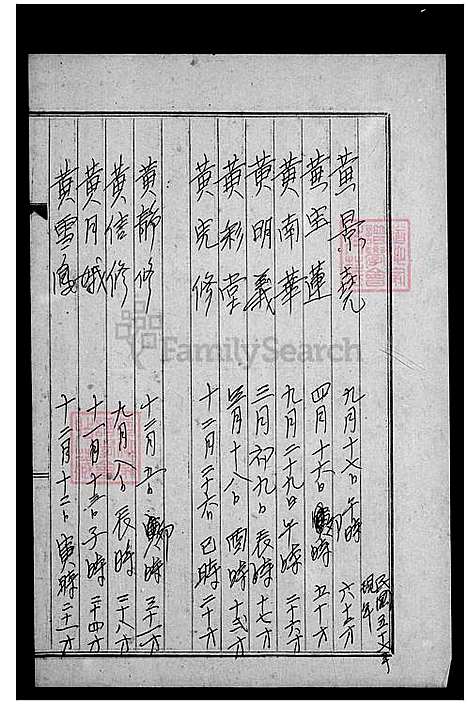 民國五十七年現年
黃景堯 九月十七日午時 六十五才
黃宝蓮 四月十六日卯時 五十才
黃南華 九月二十九日午時 二十六才
黃明義 三月初九日辰時 十七才
黃彩堂 三月十八日酉時 十五才
黃克修 十二月二十六日巳時 二十六才
黃靜修 十二月 卯時 三十一才
黃信修 九月八日辰時 二十八才
黃月娥 十一月十三日子時 二十四才
黃雪 十二月十二日寅時 二十一才
FamilySearch